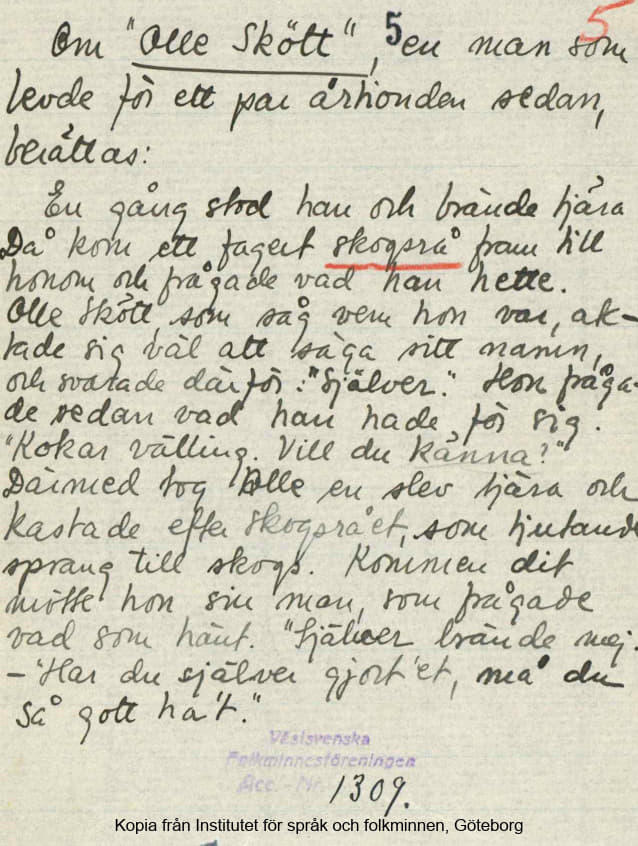 5
Om "Olle Skött", 5 en man som
levde för ett par århonden sedan,
berättas:
En gång stod han och brände tjära
Då kom ett fagert skogsrå fram till
honom och frågade vad han hette.
Olle Skött som såg vem hon var, ak-
tade sig väl att säga sitt namn,
och svarade därför: "Själver". Hon fråga-
de sedan vad han hade för sig.
"Kokar välling. Vill du känna?"
Därmed tog Olle en slev tjära och
kastade efter skogsrået, som tjutande
sprang till skogs. Kommen dit
mötte hon sin man, som frågade
vad som hänt. "Själver brände mej.
- "Har du själver gjort'et, må du
så gott ha't."
Västsvenska
Folkminnesföreningen
Acc.-Nr. 1309.
Kopia från Institutet för språk och folkminnen, Göteborg